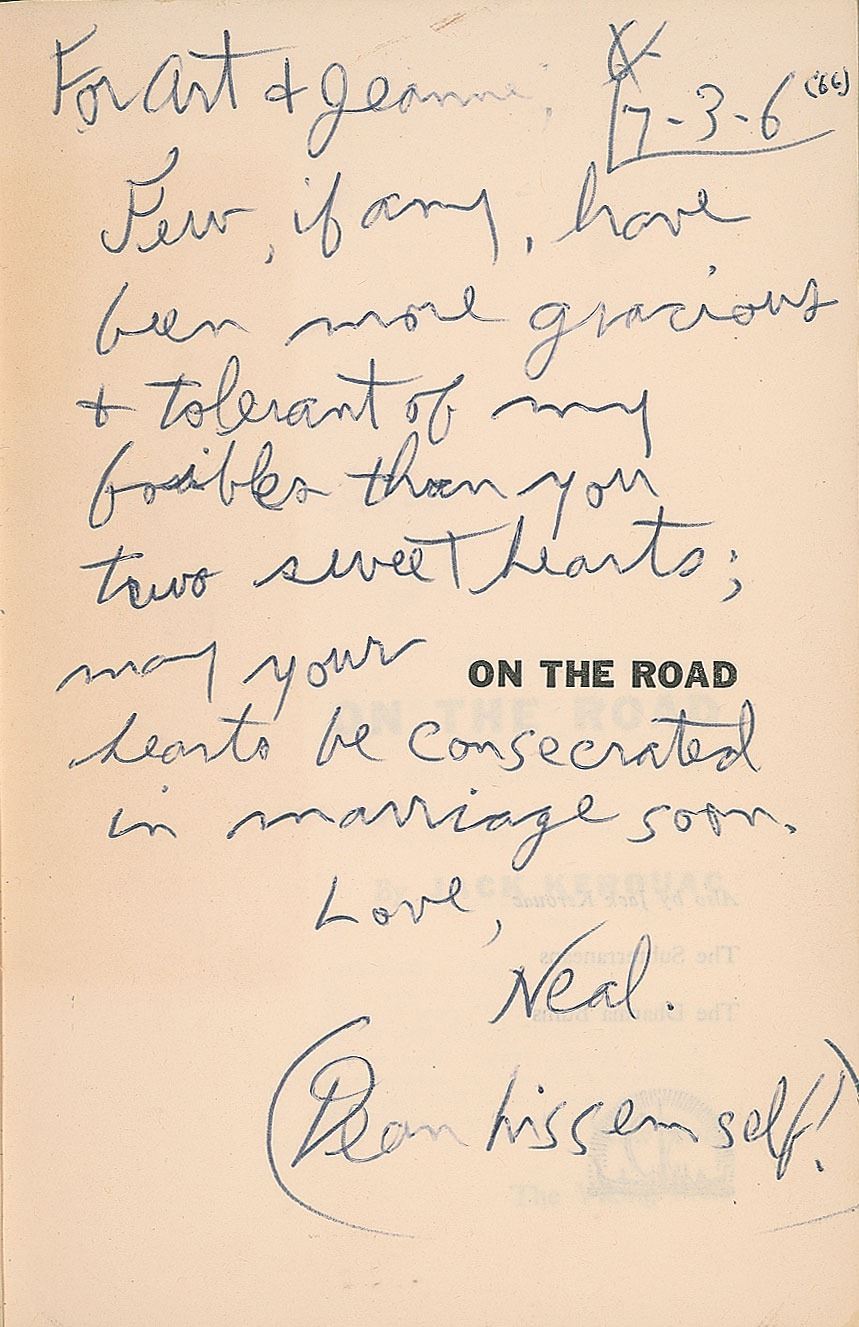 For Art & Jeanne,
7-3-6 ('66)
Few, if any, have
been more gracious
& tolerant of my
foibles than you
two sweethearts;
may your
ON THE ROAD
hearts be consecrated
in marriage soon.
Love,
Neal.
(Dean hissemself!)
By JACK KEROUAC
Also by Jack Kerouac
The Subterraneans
The Dharma Bums
The